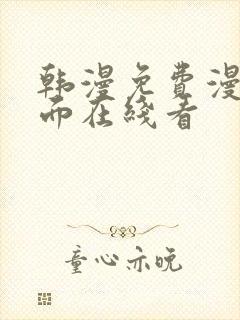 韩漫免费漫
而在线看
童心亦晚